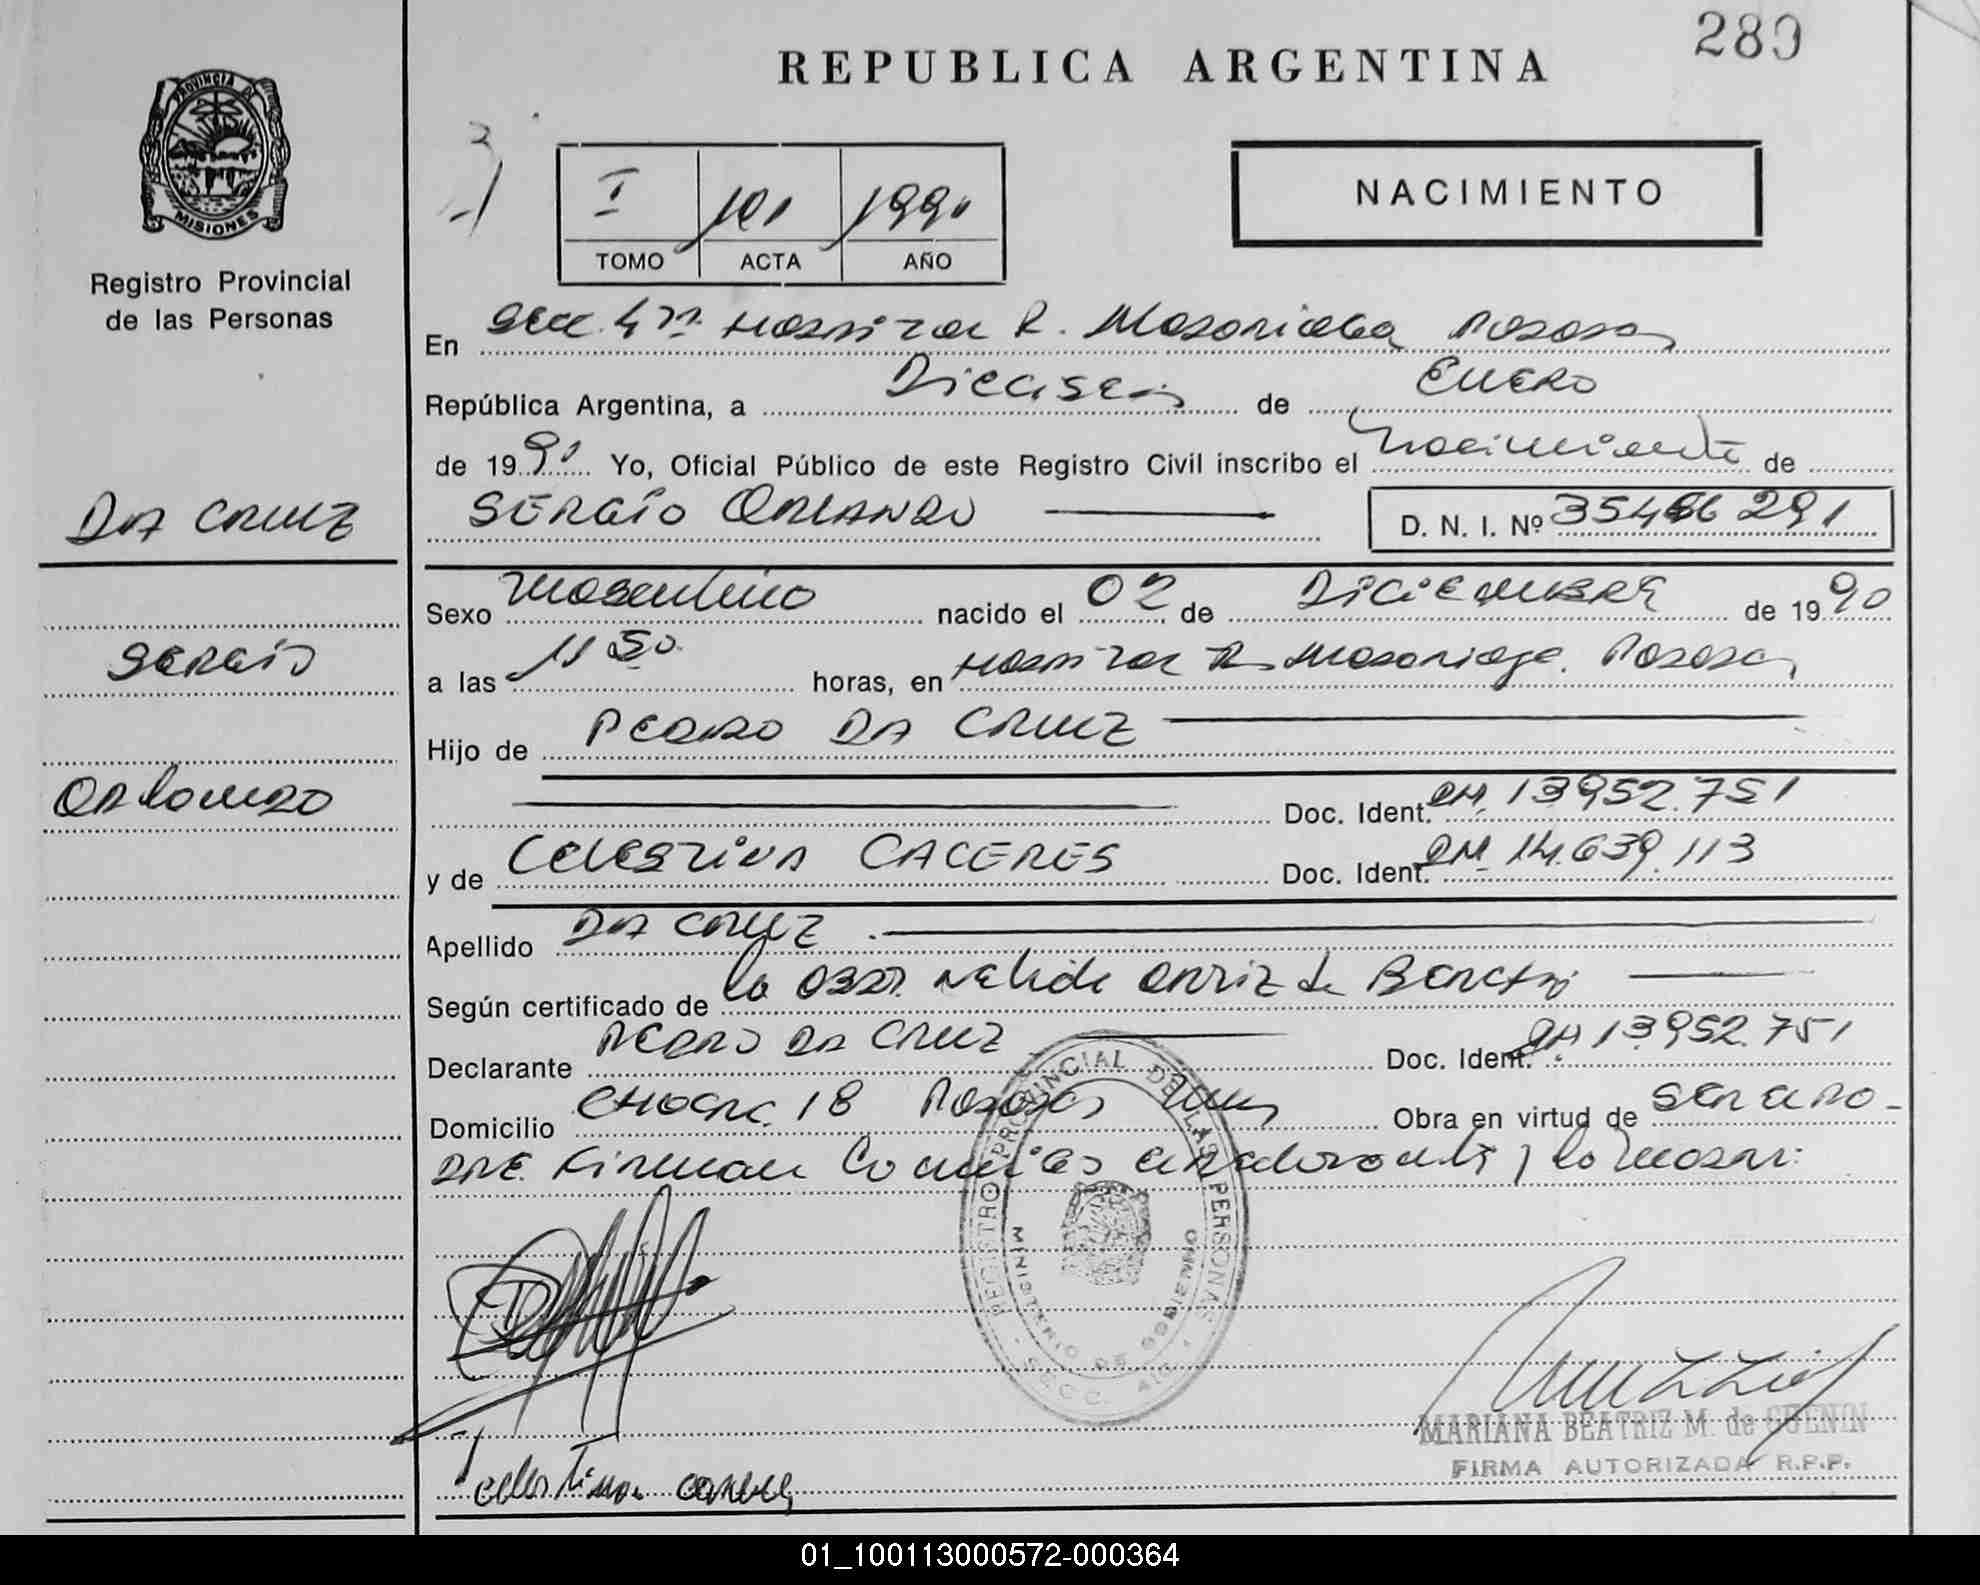 280
REPUBLICA ARGENTINA
PROVINCIA DE
MISIONES
Registro Provincial
de las Personas
NACIMIENTO
I 101 1991
TOMO ACTA AÑO
En Secc. 4ta. Hospital R. Madariaga Posadas
República Argentina, a Dieciseis de Enero
de 1991 Yo, Oficial Público de este Registro Civil inscribo el Nacimiento de
SERGIO ORLANDO D. N. I. Nº 35466291
DA CRUZ
Sergio
Orlando
Sexo Masculino nacido el 02 de DICIEMBRE de 1990
a las 11 50 horas, en Hospital R. Madariaga. Posadas
Hijo de PEDRO DA CRUZ
Doc. Ident. DNI. 13.952.751
y de CELESTINA CACERES Doc. Ident. DNI 14.639.113
Apellido DA CRUZ
Según certificado de la Obst. Nelida Ortiz de
Declarante PEDRO DA CRUZ Doc. Ident. DNI 13.952.751
Domicilio CHACRA. 18 Posadas Obra en virtud de SER EL PA-
DRE. Firman Conmigo el declarante y la madre:
REGISTRO PROVINCIAL DE LAS PERSONAS
MINISTERIO DE GOBIERNO
Celestina Caceres
MARIANA BEATRIZ M. de GUENIN
FIRMA AUTORIZADA R.P.P.
01_100113000572-000364